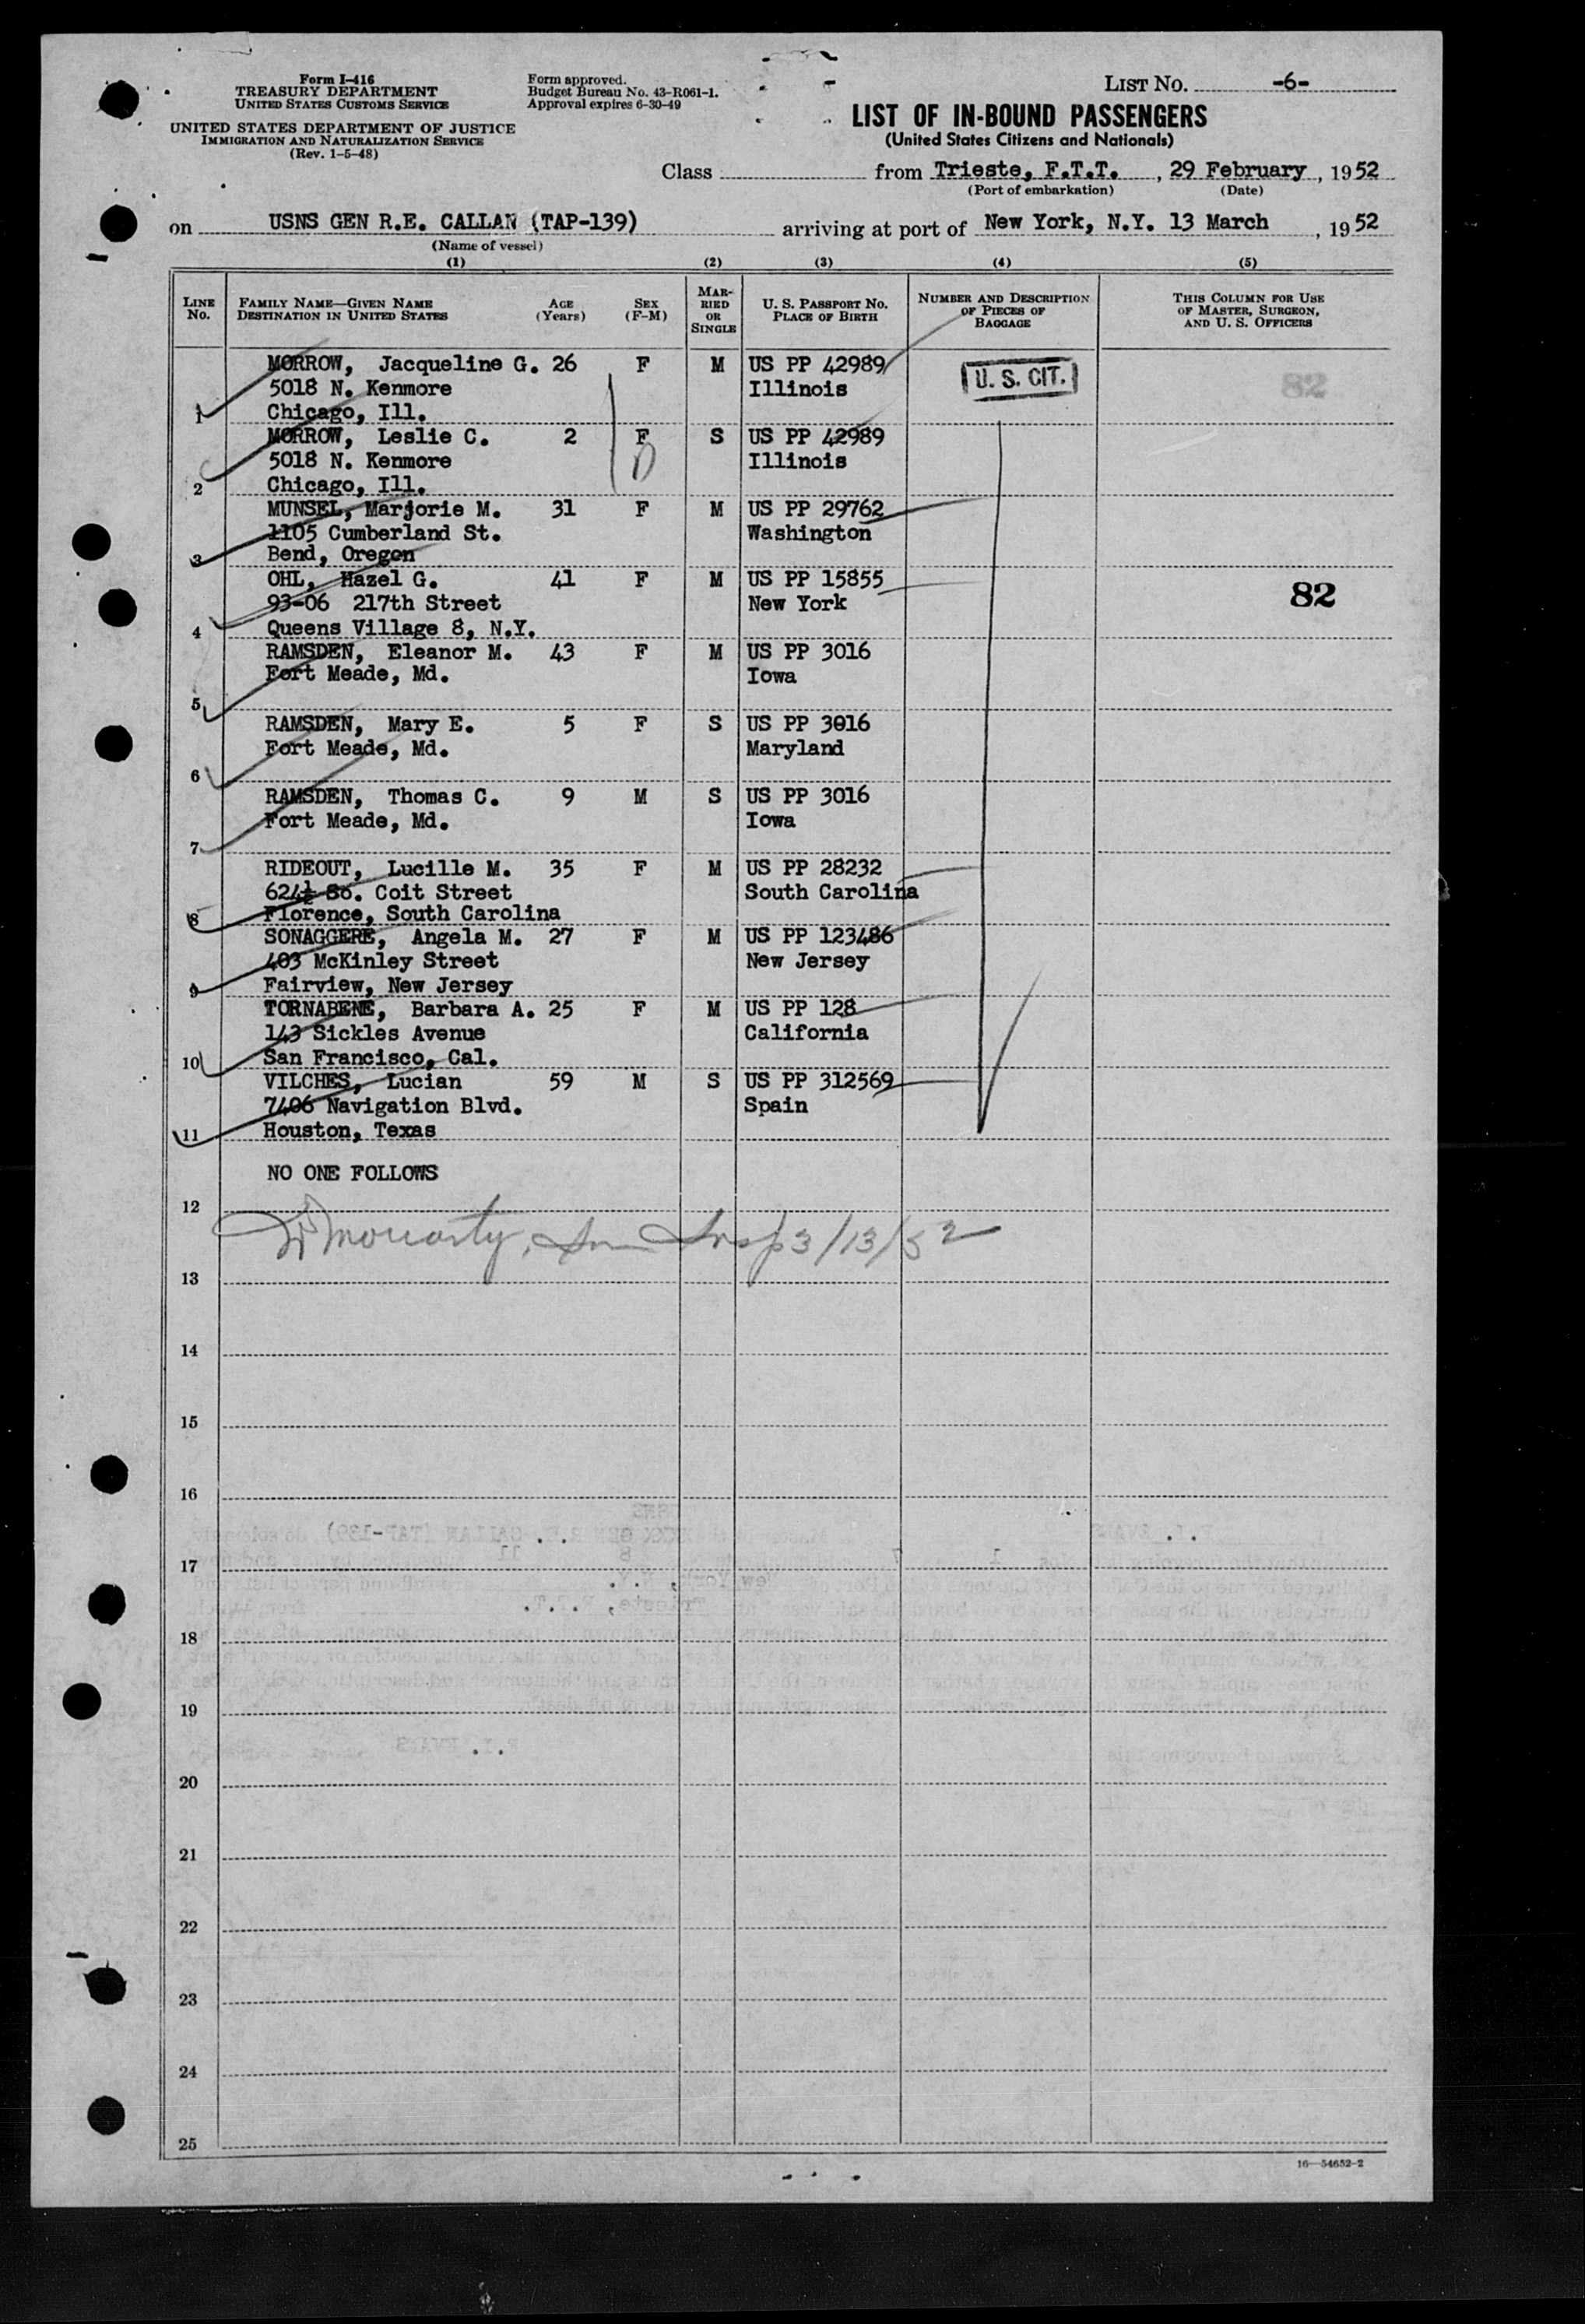 Form I-416
TREASURY DEPARTMENT
UNITED STATES CUSTOMS SERVICE
UNITED STATES DEPARTMENT OF JUSTICE
IMMIGRATION AND NATURALIZATION SERVICE
(Rev. 1-5-48)
Form approved.
Budget Bureau No. 43-R061-1.
Approval expires 6-30-49
LIST NO. -6-
LIST OF IN-BOUND PASSENGERS
(United States Citizens and Nationals)
Class from Trieste, F.T.T. , 29 February , 1952
(Port of embarkation) (Date)
on USNS GEN R.E. CALLAN (TAP-139) arriving at port of New York, N.Y. 13 March , 1952
(Name of vessel)
(1) (2) (3) (4) (5)
LINE NO. FAMILY NAME—GIVEN NAME DESTINATION IN UNITED STATES AGE (Years) SEX (F-M) MARRIED OR SINGLE U. S. PASSPORT NO. PLACE OF BIRTH NUMBER AND DESCRIPTION OF PIECES OF BAGGAGE THIS COLUMN FOR USE OF MASTER, SURGEON, AND U. S. OFFICERS
MORROW, Jacqueline G. 26 F M US PP 42989
5018 N. Kenmore Illinois U. S. CIT. 82
1 Chicago, Ill.
MORROW, Leslie C. 2 F S US PP 42989
5018 N. Kenmore Illinois
2 Chicago, Ill.
MUNSEL, Marjorie M. 31 F M US PP 29762
1105 Cumberland St. Washington
3 Bend, Oregon
OHL, Hazel G. 41 F M US PP 15855
93-06 217th Street New York 82
4 Queens Village 8, N.Y.
RAMSDEN, Eleanor M. 43 F M US PP 3016
Fort Meade, Md. Iowa
5
RAMSDEN, Mary E. 5 F S US PP 3016
Fort Meade, Md. Maryland
6
RAMSDEN, Thomas C. 9 M S US PP 3016
Fort Meade, Md. Iowa
7
RIDEOUT, Lucille M. 35 F M US PP 28232
624½ So. Coit Street South Carolina
8 Florence, South Carolina
SONAGGERE, Angela M. 27 F M US PP 123486
403 McKinley Street New Jersey
9 Fairview, New Jersey
TORNABENE, Barbara A. 25 F M US PP 128
143 Sickles Avenue California
10 San Francisco, Cal.
VILCHES, Lucian 59 M S US PP 312569
7406 Navigation Blvd. Spain
11 Houston, Texas
NO ONE FOLLOWS
12
Moriarty, Insp 3/13/52
13
14
15
16
17
18
19
20
21
22
23
24
25
16—54652-2